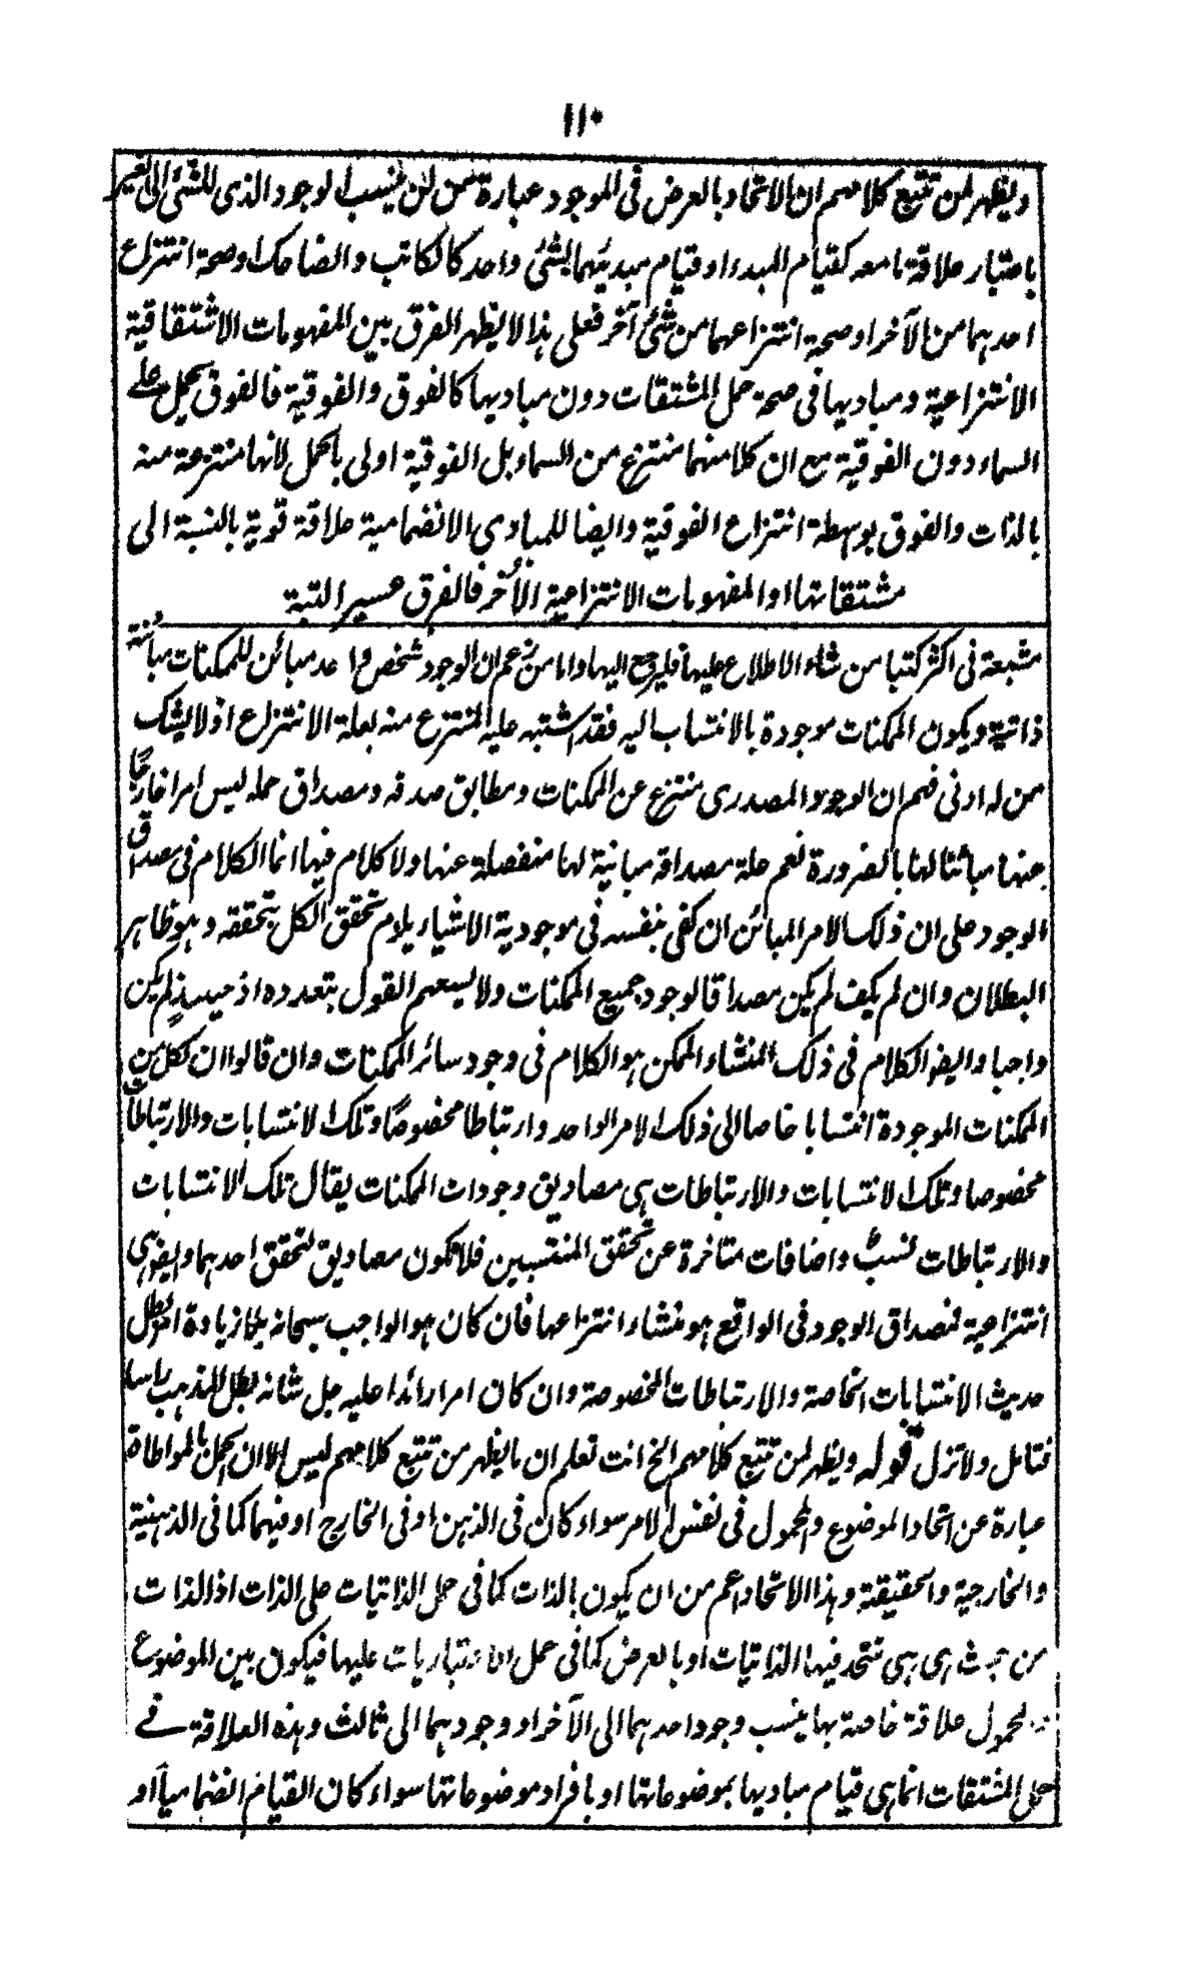 ١١٠
ويظهر لمن تتبع كلامهم ان الاتحاد بالعرض في الموجود عبارة عن ان ينسب الوجود الذي للشئ الى الغير
باعتبار علاقة ما معه كقيام المبدء او قيام مبدئيهما بشئ واحد كالكاتب والضاحك او صحة انتزاع
احدهما من الآخر او صحة انتزاعهما من شئ آخر فعلى هذا لا يظهر الفرق بين المفهومات الاشتقاقية
الانتزاعية ومباديها في صحة حمل المشتقات دون مباديها كالفوق والفوقية فالفوق يحمل على
السماء دون الفوقية مع ان كلا منهما منتزع من السماء بل الفوقية اولى بالحمل لانها منتزعة منه
بالذات والفوق بوسطة انتزاع الفوقية وايضا للمبادي الانضمامية علاقة قوية بالنسبة الى
مشتقاتها او المفهومات الانتزاعية الأخر فالفرق عسير التبة
مشبعة في اكثر كتبنا من شاء الاطلاع عليها فليرجع اليها واما من زعم ان الوجود شخص واحد مبائن للممكنات مبائنة
ذاتية ويكون الممكنات موجودة بالانتساب اليه فقد اشتبه عليه المنتزع منه بعلة الانتزاع اذ لا يشك
من له ادنى فهم ان الوجود المصدري منتزع عن الممكنات ومطابق صدقه ومصداق حمله ليس امرا خارجا
عنها مبائنا لها بالضرورة نعم علة مصداقه مبانية لها منفصلة عنها ولا كلام فيها انما الكلام في مصداق
الوجود على ان ذلك الامر المبائن ان كفى بنفسه في موجودية الاشياء يلزم تحقق الكل بتحققه وهو ظاهر
البطلان وان لم يكف لم يكن مصداقا لوجود جميع الممكنات ولا يسعهم القول بتعدده اذ حينئذ لم يكن
واجبا وايضا الكلام في ذلك المنشاء الممكن هو الكلام في وجود سائر الممكنات وان قالوا ان لكل من
الممكنات الموجودة انتسابا خاصا الى ذلك الامر الواحد وارتباطا مخصوصا وتلك الانتسابات والارتباطات
مخصوصا وتلك الانتسابات والارتباطات هي مصاديق وجودات الممكنات يقال تلك الانتسابات
والارتباطات نسب واضافات متاخرة عن تحقق المنتسبين فلا تكون مصاديق لتحقق احدهما وايضا هي
انتزاعية فمصداق الوجود في الواقع هو منشاء انتزاعها فان كان هو الواجب سبحانه بلا زيادة امر بطل
حديث الانتسابات الخاصة والارتباطات المخصوصة وان كان امرا زائدا عليه جل شانه بطل المذهب راسا
فتامل ولا تزل قوله ويظهر لمن تتبع كلامهم الخ انت تعلم ان ما يظهر من تتبع كلامهم ليس الا ان الحمل بالمواطاة
عبارة عن اتحاد الموضوع والمحمول في نفس الامر سواء كان في الذهن او في الخارج او فيهما كما في الذهنية
والخارجية والحقيقية وهذا الاتحاد اعم من ان يكون بالذات كما في حمل الذاتيات على الذات اذ الذات
من حيث هي هي تتحد فيها الذاتيات او بالعرض كما في حمل الاعتباريات عليها فيكون بين الموضوع
والمحمول علاقة خاصة بها ينسب وجود احدهما الى الآخر او وجودهما الى ثالث وهذه العلاقة في
حمل المشتقات انما هي قيام مباديها بموضوعاتها او بافراد موضوعاتها سواء كان القيام انضماميا او